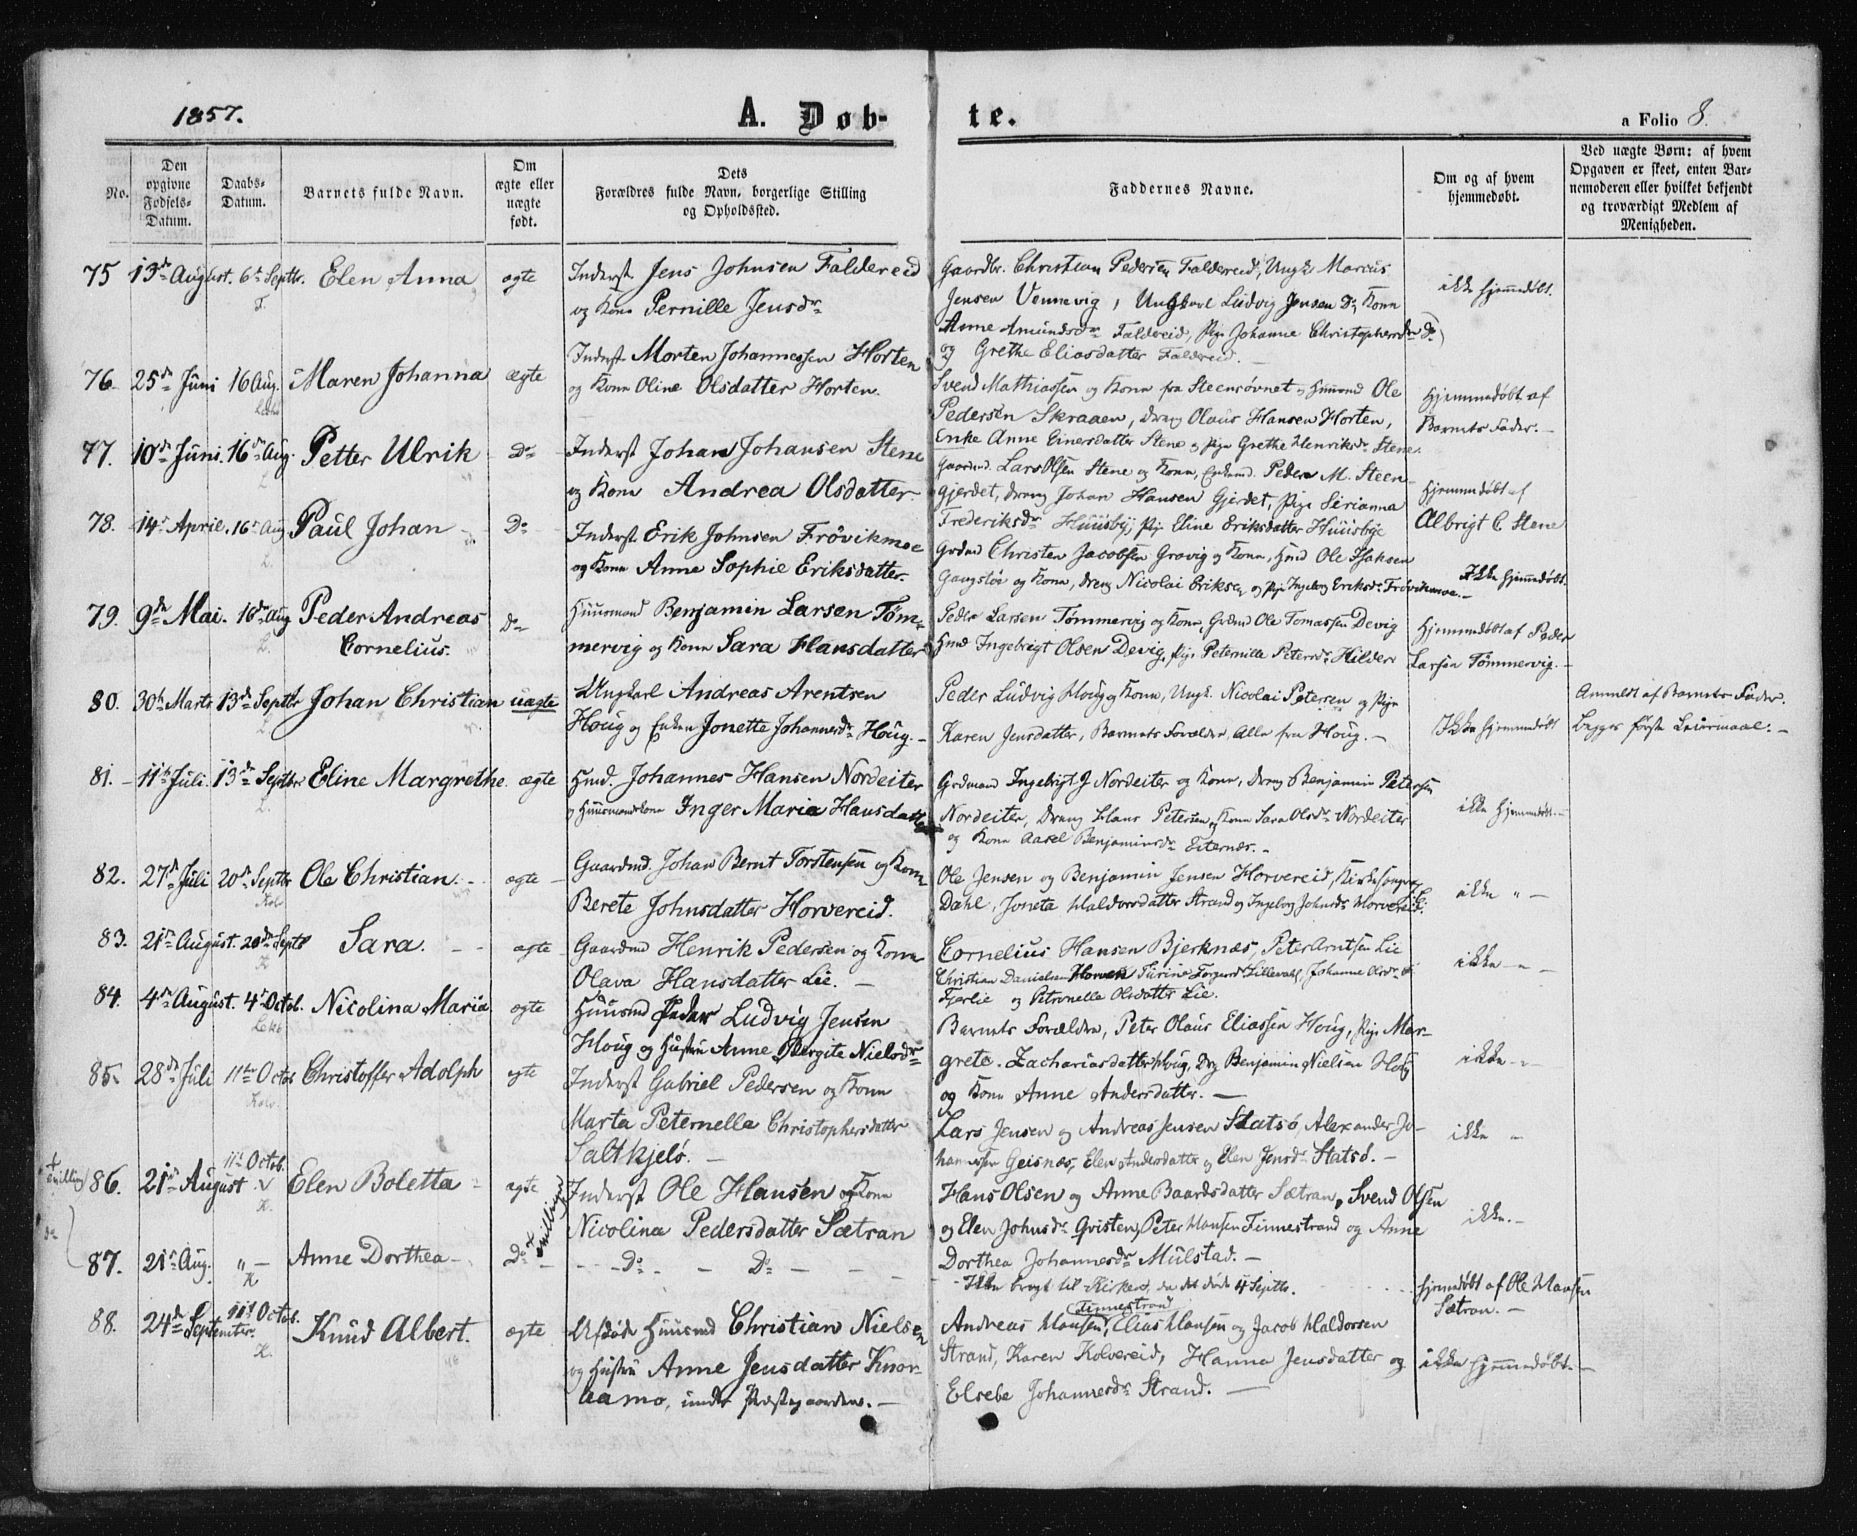 1857.
A. Døb-
te.
a Folio 8.
No.
Den opgivne Fødsels-Datum.
Daabs-Datum.
Barnets fulde Navn.
Om ægte eller uægte født.
Dets Forældres fulde Navn, borgerlige Stilling og Opholdssted.
Faddernes Navne.
Om og af hvem hjemmedøbt.
Ved uægte Børn: af hvem Opgaven er skeet, enten Barnemoderen eller hvilket bekjendt og troværdigt Medlem af Menigheden.
75 13de August. 6te Septbr. Elen Anna ægte
Inderst Jens Johnsen Faldereid
og Kone Pernille Jensdr
Gaardbr. Christian Pedersen Faldereid, Ungk. Marcus
Jensen Vennevig, Ungkarl Ludvig Jensen Do, Kone
Anne Amundsdr Faldereid, Pige Johanne Christophersdr Do
og Grethe Eliasdatter Faldereid. —
ikke hjemmedøbt.
76. 25de Juni 16 Aug. Maren Johanna ægte
Inderst Morten Johannessen Horten
og Kone Oline Olsdatter Horten.
Svend Mathiassen og Kone fra Steensøvnet og Huusmd Ole
Pedersen Skraaen, Dreng Olaus Hansen Horten,
Enke Anne Einersdatter Stene og Pige Grethe Henriksdr Stene.
Hjemmedøbt af
Barnets Fader. —
77. 10de Juni. 16de Aug. Petter Ulrik Do
Inderst Johan Johansen Stene
og Kone Andrea Olsdatter
Gaardmd. Lars Olsen Stene og Kone, Enkemd. Peder M. Steen-
gjerdet, Dreng Johan Hansen Gjerdet, Pige Serianna
Frederiksdr Huusby, Pige Eline Eriksdatter Huusbye
Hjemmedøbt af
Albrigt C. Stene
78. 14de April. 16de Aug Paul Johan Do
Inderst Erik Johnsen Frøvikmoe
og Kone Anne Sophie Eriksdatter.
Grdmd Christen Jacobsen Gravig og Kone, Hmd Ole Isaksen
Gangstøe og Kone, Dreng Nicolai Eriksen og Pige Ingeborg Eriksdr Frøvikmoe. —
Ikke hjemmedøbt.
79. 9de Mai. 16de Aug Peder Andreas
Cornelius. Do
Huusmand Benjamin Larsen Tøm-
mervig og Kone Sara Hansdatter
Peder Larsen Tømmervig og Kone, Grdmd Ole Tomassen Devig
Hmd Ingebrigt Olsen Devig, Pige Peternille Petersdr Hilder
Hjemmedøbt af Peder
Larsen Tømmervig. —
80. 30te Marts 13de Septbr Johan Christian uægte
Ungkarl Andreas Arentsen
Houg og Enken Jonette Johannesdr Houg. —
Peder Ludvig Houg og Kone, Ungk. Nicolai Petersen og Pige
Karen Jensdatter, Barnets Forældre, Alle fra Houg. —
Ikke hjemmedøbt
Anmeldt af Barnets Fader.
Begges første Leiermaal. —
81. 11te Juli. 13de Septbr Eline Margrethe. ægte
Hmd. Johannes Hansen Nordeiter
og Huusmandskone Inger Maria Hansdatter
Grdmand Ingebrigt J Nordeiter og Kone, Dreng Benjamin Petersen
Nordeiter, Dreng Hans Petersen og Kone Sara Olsdr Nordeiter
og Kone Aasel Benjaminsdr Eiternæs. —
ikke hjemmedøbt. —
82. 27de Juli 20de Septbr Ole Christian. ægte
Gaardmd. Johan Bernt Torstensen og Kone
Berete Johnsdatter Horvereid.
Ole Jensen og Benjamin Jensen Horvereid, Kirkesanger
Dahl, Joneta Haldorsdatter Strand og Ingeborg Johnsdr Horvereid.
ikke " —
83. 21de August. 20de Septb Sara. ægte
Gaardmd Henrik Pedersen og Kone
Olava Hansdatter Lie. —
Cornelius Hansen Bjerknæs, Peter Arntsen Lie
Christian Danielsen Horven Turine Torgersdr Lillevahl, Johanne Olsdr
Fjerlie og Petronelle Olsdatter Lie.
ikke — " —
84. 4de August. 4de Octob. Nicolina Maria ægte
Huusmd Peder Ludvig Jensen
Houg og Hustru Anne Bergite Nielsdr
Barnets Forældre, Peter Olaus Eliassen Houg, Pige Mar-
grete Zachariasdatter Houg, Drg Benjamin Nielsen Houg
og Kone Anne Andersdatter. —
ikke — " —
85. 28de Juli 11te Octob Christoffer Adolph ægte
Inderst Gabriel Pedersen og Kone
Marta Peternella Christophersdatter
Saltkjelø. —
Lars Jensen og Andreas Jensen Statsø, Alexander Jo-
hannesen Geisnæs, Elen Andersdatter og Elen Jensdr Statsø. —
ikke "
+ tvilling 86. 21de August 11te Octob. Elen Boletta ægte tvillinger
Inderst Ole Hansen og Kone
Nicolina Pedersdatter Sætran
Hans Olsen og Anne Baardsdatter Sætran, Svend Olsen
og Elen Johnsdr Qvisten, Peter Hansen Finnestrand og Anne
Dorthea Johannesdr Mulstad. —
ikke. —
do 87. 21de Aug. " — Anne Dorthea — Do —
— Do — Do —
Ikke bragt til Kirken, da det døde 4 Septbr.
hjemdøbt af Ole Hansen
Sætran. —
88. 24de September. 11te Octob. Knud Albert. ægte
Afdøde Huusmd Christian Nielsen
og Hustru Anne Jensdatter Knar-
aamo, under Præstegaarden. —
Finnestrand
Andreas Hansen, Elias Hansen og Jacob Haldorsen
Strand, Karen Kolvereid, Hanna Jensdatter og
Elsebe Johannesdr Strand. —
ikke hjemmedøbt. —